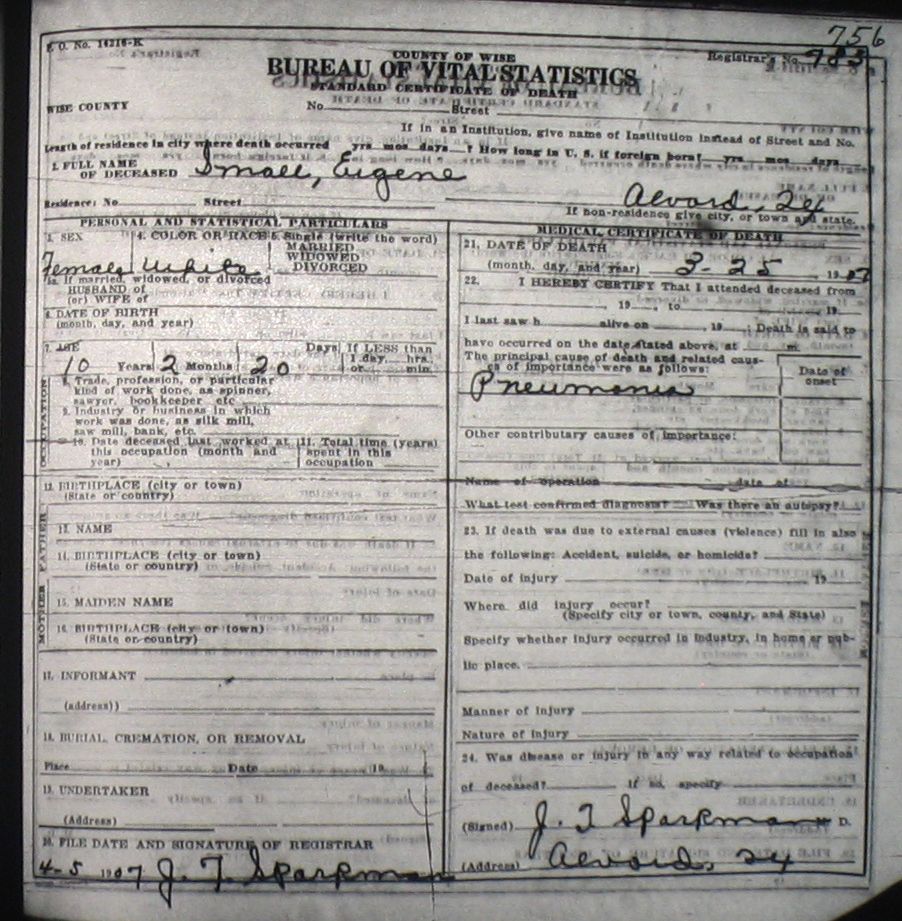 756
F. O. No. 14216-K
Registrar's No. 783
COUNTY OF WISE
BUREAU OF VITAL STATISTICS
STANDARD CERTIFICATE OF DEATH
WISE COUNTY No. Street
If in an Institution, give name of Institution instead of Street and No.
Length of residence in city where death occurred yrs mos days ? How long in U. S. if foreign born? yrs mos days
1. FULL NAME
OF DECEASED Small, Eugene
Residence: No Street Alvord,
If non-residence give city, or town and state.
PERSONAL AND STATISTICAL PARTICULARS
3. SEX 4. COLOR OR RACE 5. Single (write the word)
MARRIED
WIDOWED
DIVORCED
Female White
5a. If married, widowed, or divorced
HUSBAND of
(or) WIFE of
6. DATE OF BIRTH
(month, day, and year)
7. AGE 10 Years 2 Months 20 Days If LESS than
1 day, hrs.
or min.
OCCUPATION
8. Trade, profession, or particular
kind of work done, as spinner,
sawyer, bookkeeper etc
9. Industry or business in which
work was done, as silk mill,
saw mill, bank, etc.
10. Date deceased last worked at
this occupation (month and
year)
11. Total time (years)
spent in this
occupation
12. BIRTHPLACE (city or town)
(State or country)
FATHER
13. NAME
14. BIRTHPLACE (city or town)
(State or country)
MOTHER
15. MAIDEN NAME
16. BIRTHPLACE (city or town)
(State or country)
17. INFORMANT
(address))
18. BURIAL, CREMATION, OR REMOVAL
Place Date 19
19. UNDERTAKER
(Address)
20. FILE DATE AND SIGNATURE OF REGISTRAR
4-5 1907 J. T. Sparkman
MEDICAL CERTIFICATE OF DEATH
21. DATE OF DEATH
(month, day, and year) 3-25 1907
22. I HEREBY CERTIFY That I attended deceased from
, 19 , to , 19 .
I last saw h alive on , 19 ; Death is said to
have occurred on the date stated above, at m.
The principal cause of death and related caus-
es of importance were as follows: Date of
onset
Pneumonia
Other contributary causes of importance:
Name of operation date of
What test confirmed diagnosis? Was there an autopsy?
23. If death was due to external causes (violence) fill in also
the following: Accident, suicide, or homicide?
Date of injury 19
Where did injury occur?
(Specify city or town, county, and State)
Specify whether injury occurred in industry, in home or pub-
lic place.
Manner of injury
Nature of injury
24. Was disease or injury in any way related to occupation
of deceased? If so, specify
(Signed) J. T Sparkman D.
(Address) Alvord,